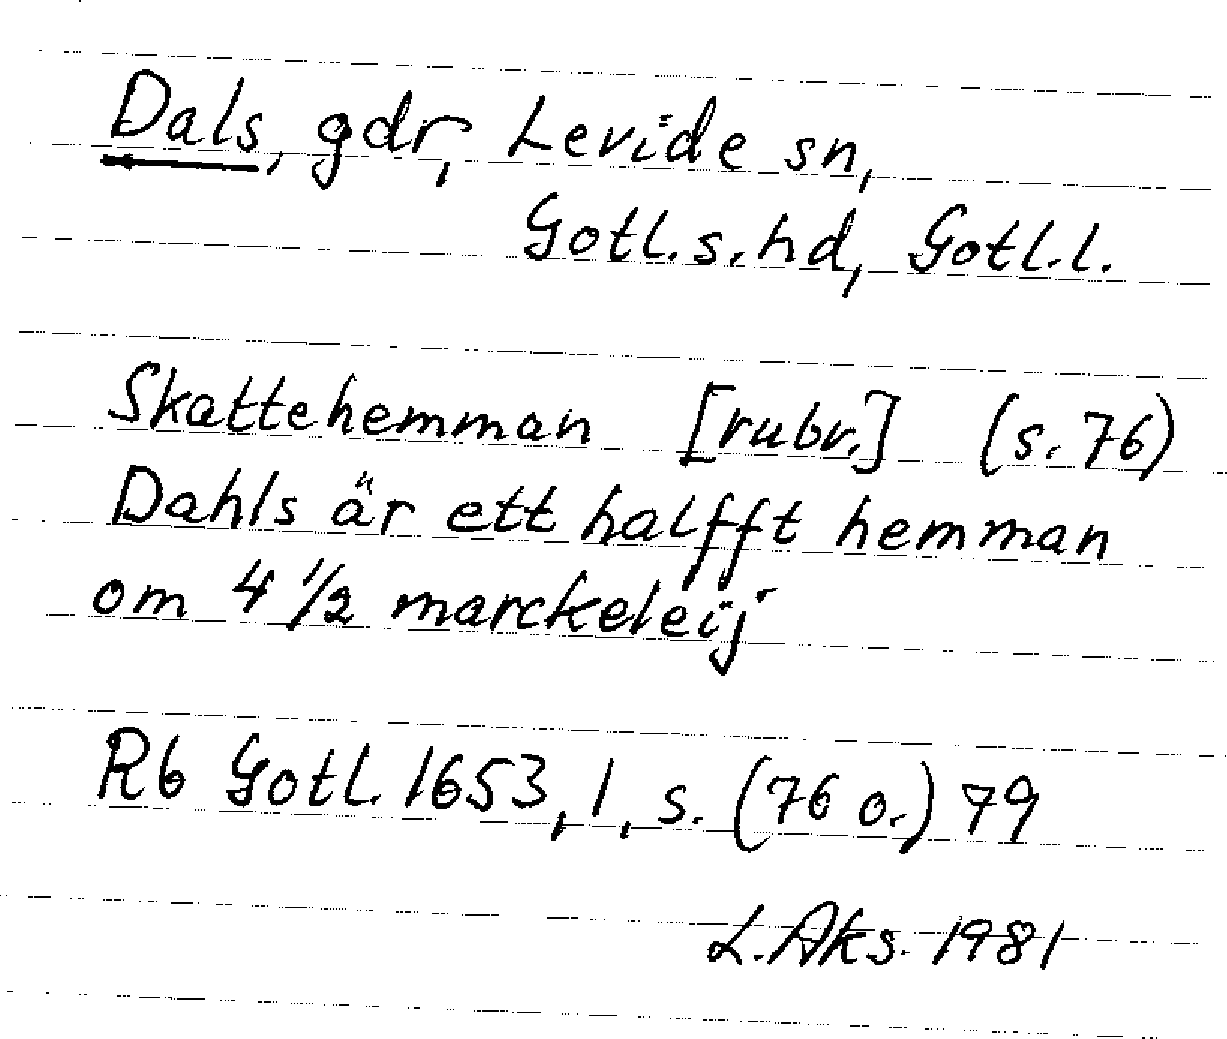 Dals, gdr, Levide sn,
Gotl.s.hd, Gotl.l.
Skattehemman [rubr.] (s. 76)
Dahls är ett halfft hemman
om 4 1/2 marckeleij
Rb Gotl. 1653, 1, s. (76 o.) 79
L. Aks. 1981